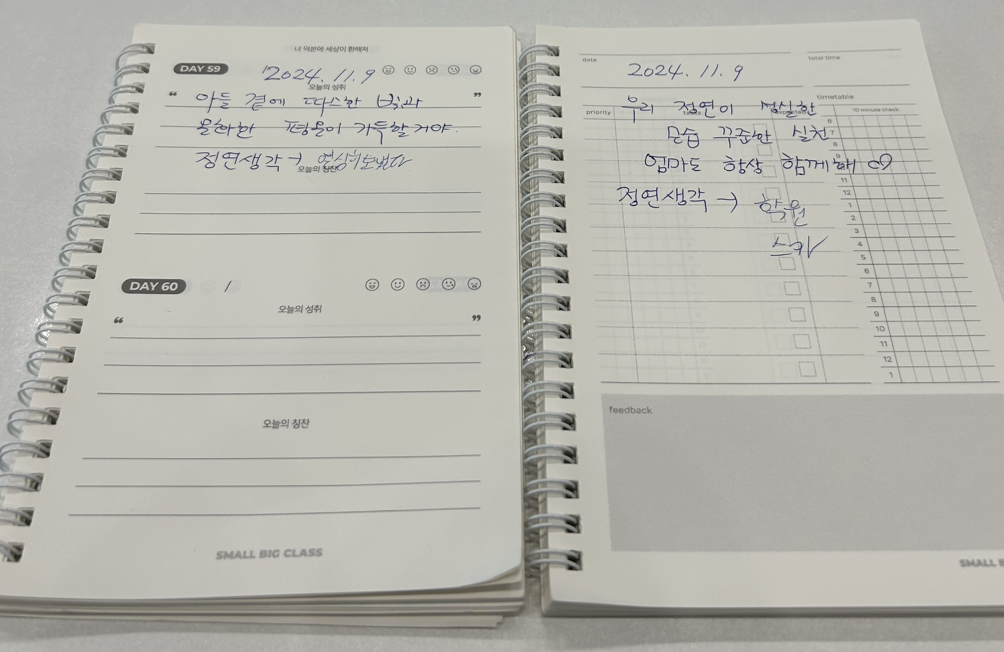 너 덕분에 세상이 환해져
DAY 59 2024. 11. 9
오늘의 성취
“ 아들 곁에 따스한 빛과 ”
온화한 평온이 가득할거야.
정연생각 → 열심히보냈다
오늘의 칭찬
DAY 60 /
오늘의 성취
“ ”
오늘의 칭찬
SMALL BIG CLASS
date total time
2024. 11. 9
timetable
우리 정연이 성실한
priority 10 minute check
모습 꾸준한 실천
엄마도 항상 함께해 ♡
정연생각 → 학원
스카
6
7
8
9
11
12
1
2
3
4
5
6
7
8
9
10
11
12
1
feedback
SMALL B